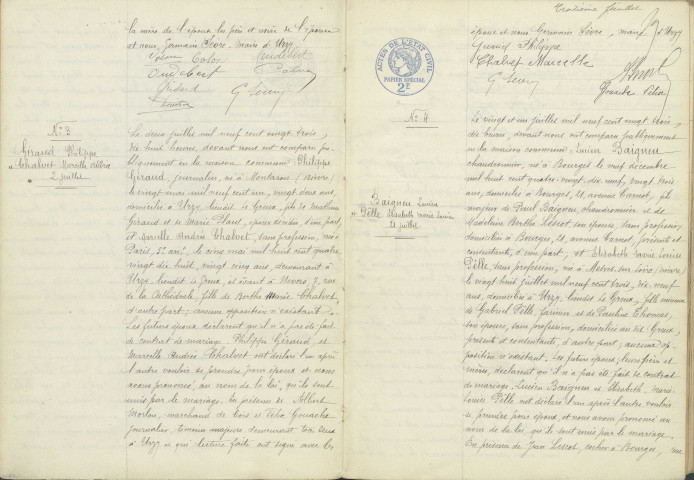 la mère de l'époux les père et mère de l'épouse
et nous, Germain Sèvre, maire d'Urzy.
N° 3
Giraud Philippe
&
Chalvet Marcelle Andrée
2 juillet
Le deux juillet mil neuf cent vingt trois,
dix huit heures, devant nous ont comparu pu-
bliquement en la maison commune Philippe
Giraud, journalier, né à Montaron (Nièvre)
le vingt mai mil neuf cent un, vingt deux ans,
domicilié à Urzy, lieudit le Greux, fils de
Giraud et de Marie époux décédés, d'une part,
et Marcelle Andrée Chalvet, sans profession, née à
Paris, le cinq mai mil huit cent quatre
vingt dix huit, vingt cinq ans, demeurant à
Urzy, lieudit le Greux, et avant à Nevers, 7, rue
de la Cathédrale, fille de Berthe Marie Chalvet,
d'autre part; aucune opposition n'existant.
Les futurs époux déclarent qu'il n'a pas été fait
de contrat de mariage. Philippe Giraud et
Marcelle Andrée Chalvet ont déclaré l'un après
l'autre vouloir se prendre pour époux et nous
avons prononcé, au nom de la loi, qu'ils sont
unis par le mariage. En présence de Albert
Merlin, marchand de bois et Félix Gouache
journalier, témoins majeurs demeurant tous deux
à Urzy et qui lecture faite ont signé avec les
Troisième feuillet
époux et nous Germain Sèvre, maire d'Urzy
Giraud Philippe
Chalvet Marcelle
Gouache Félix
ACTES DE L'ETAT CIVIL
PAPIER SPÉCIAL
2F
N° 4
Baigneu Lucien
&
Pille Elisabeth Marie Louise
21 juillet
Le vingt et un juillet mil neuf cent vingt trois,
dix heures, devant nous ont comparu publiquement
en la maison commune: Lucien Baigneu
chaudronnier, né à Bourges le neuf décembre
mil huit cent quatre-vingt-dix-neuf, vingt trois
ans, domicilié à Bourges, 21, avenue Carnot, fils
majeur de Baigneu, chaudronnier et de
Madeleine Berthe son épouse, sans profession,
domiciliés à Bourges, 21, avenue Carnot, présents et
consentants, d'une part; et Elisabeth Marie Louise
Pille, sans profession, née à Mesves-sur-Loire (Nièvre)
le vingt huit juillet mil neuf cent trois, dix neuf
ans, domiciliée à Urzy, lieudit Le Greux, fille mineure
de Gabriel Pille, et de Pauline Thomas,
son épouse, sans profession, domiciliés au dit Greux,
présents et consentants, d'autre part; aucune op-
position n'existant. Les futurs époux, leurs père et
mère, déclarent qu'il n'a pas été fait de contrat
de mariage. Lucien Baigneu et Elisabeth Marie
Louise Pille ont déclaré l'un après l'autre vouloir
se prendre pour époux et nous avons prononcé au
nom de la loi, qu'ils sont unis par le mariage.
En présence de Jean cocher à Bourges, rue